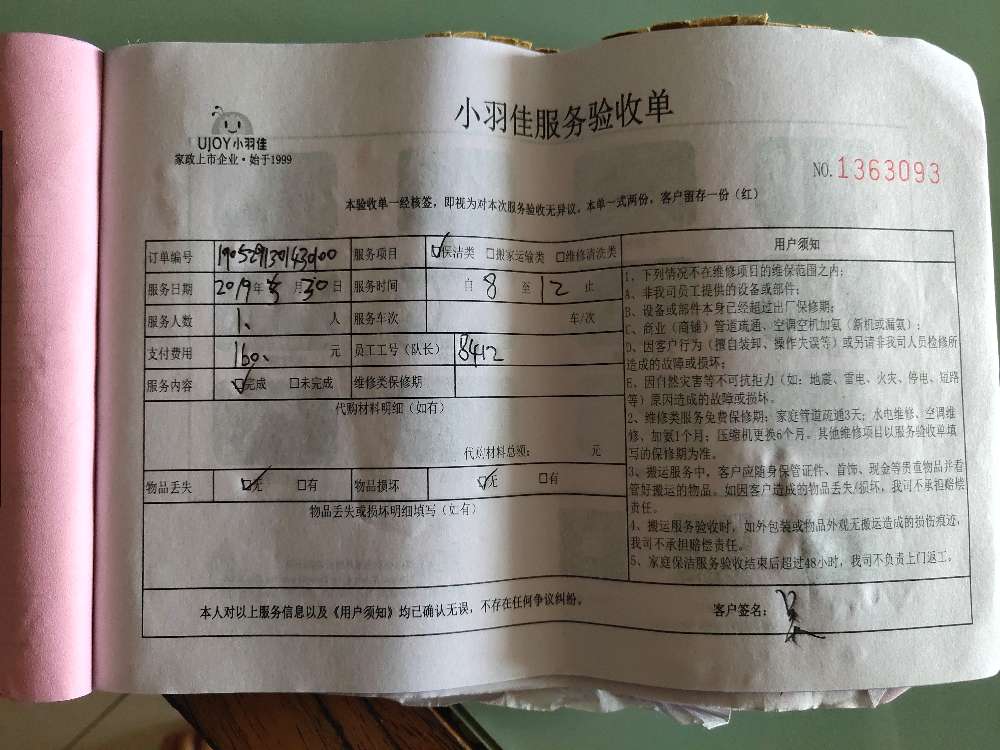 小羽佳服务验收单
UJOY小羽佳
家政上市企业·始于1999
NO.1363093
本验收单一经核签，即视为对本次服务验收无异议。本单一式两份，客户留存一份（红）
订单编号 190529130143000 服务项目 ☑保洁类 □搬家运输类 □维修清洗类
服务日期 2019年 5月 30日 服务时间 自 8 至 12 止
服务人数 1、 人 服务车次 车/次
支付费用 160、 元 员工工号（队长） 8412
服务内容 ☑完成 □未完成 维修类保修期
代购材料明细（如有）
代购材料总额： 元
物品丢失 ☑无 □有 物品损坏 ☑无 □有
物品丢失或损坏明细填写（如有）
用户须知
1、下列情况不在维修项目的维保范围之内：
A、非我司员工提供的设备或部件；
B、设备或部件本身已经超过出厂保修期；
C、商业（商铺）管道疏通、空调空机加氨（新机或漏氨）；
D、因客户行为（擅自装卸、操作失误等）或另请非我司人员检修所
造成的故障或损坏；
E、因自然灾害等不可抗拒力（如：地震、雷电、火灾、停电、短路
等）原因造成的故障或损坏。
2、维修类服务免费保修期：家庭管道疏通3天；水电维修、空调维
修、加氨1个月；压缩机更换6个月。其他维修项目以服务验收单填
写的保修期为准。
3、搬运服务中，客户应随身保管证件、首饰、现金等贵重物品并看
管好搬运的物品。如因客户造成的物品丢失/损坏，我司不承担赔偿
责任。
4、搬运服务验收时，如外包装或物品外观无搬运造成的损伤痕迹，
我司不承担赔偿责任。
5、家庭保洁服务验收结束后超过48小时，我司不负责上门返工。
本人对以上服务信息以及《用户须知》均已确认无误，不存在任何争议纠纷。 客户签名：